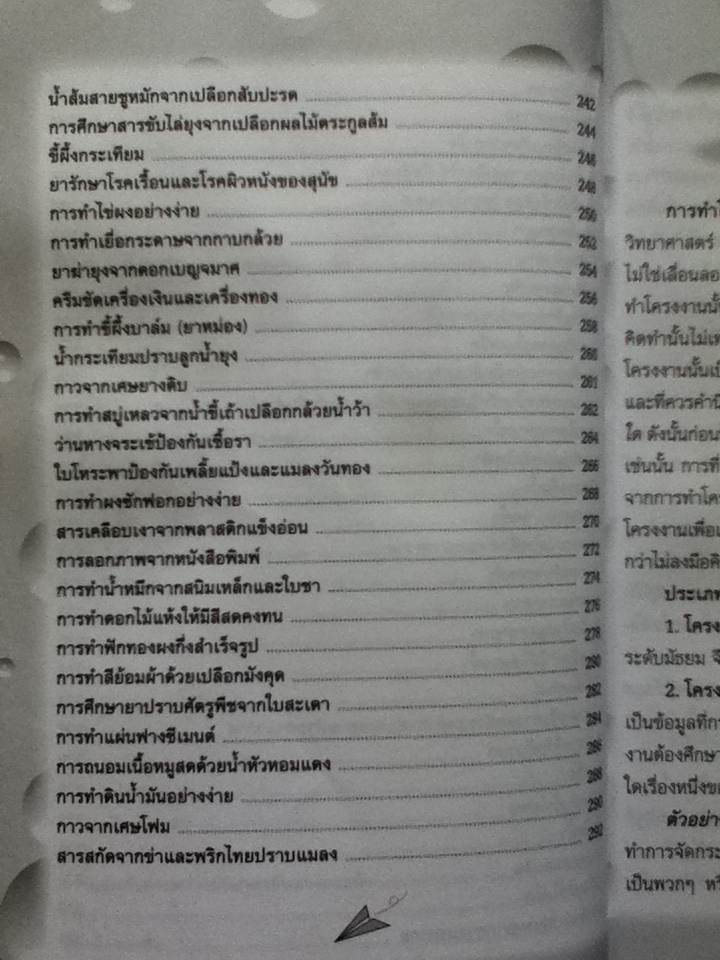 น้ำส้มสายชูหมักจากเปลือกสับปะรด 242
การศึกษาสารขับไล่ยุงจากเปลือกผลไม้ตระกูลส้ม 244
ขี้ผึ้งกระเทียม 246
ยารักษาโรคเรื้อนและโรคผิวหนังของสุนัข 248
การทำไข่ผงอย่างง่าย 250
การทำเยื่อกระดาษจากกาบกล้วย 252
ยาฆ่ายุงจากดอกเบญจมาศ 254
ครีมขัดเครื่องเงินและเครื่องทอง 256
การทำขี้ผึ้งบาล์ม (ยาหม่อง) 258
น้ำกระเทียมปราบลูกน้ำยุง 260
กาวจากเศษยางดิบ 261
การทำสบู่เหลวจากน้ำขี้เถ้าเปลือกกล้วยน้ำว้า 262
ว่านหางจระเข้ป้องกันเชื้อรา 264
ใบโหระพาป้องกันเพลี้ยแป้งและแมลงวันทอง 266
การทำผงซักฟอกอย่างง่าย 268
สารเคลือบเงาจากพลาสติกแข็งอ่อน 270
การลอกภาพจากหนังสือพิมพ์ 272
การทำน้ำหมึกจากสนิมเหล็กและใบชา 274
การทำดอกไม้แห้งให้มีสีสดคงทน 276
การทำฟักทองผงกึ่งสำเร็จรูป 278
การทำสีย้อมผ้าด้วยเปลือกมังคุด 280
การศึกษายาปราบศัตรูพืชจากใบสะเดา 282
การทำแผ่นฟางซีเมนต์ 284
การถนอมเนื้อหมูสดด้วยน้ำหัวหอมแดง 286
การทำดินน้ำมันอย่างง่าย 288
กาวจากเศษโฟม 290
สารสกัดจากข่าและพริกไทยปราบแมลง 292
การทำ
วิทยาศาสตร์
ไม่ใช่เลื่อนลอ
ทำโครงงานนั้
คิดทำนั้นไม่เ
โครงงานนั้นเ
และที่ควรคำนึ
ใด ดังนั้นก่อน
เช่นนั้น การที่
จากการทำโค
โครงงานเพื่อ
กว่าไม่ลงมือ
ประเภ
1. โครง
ระดับมัธยม
2. โครง
เป็นข้อมูลที่
งานต้องศึกษา
ใดเรื่องหนึ่งข
ตัวอย่า
ทำการจัดกระ
เป็นพวกๆ